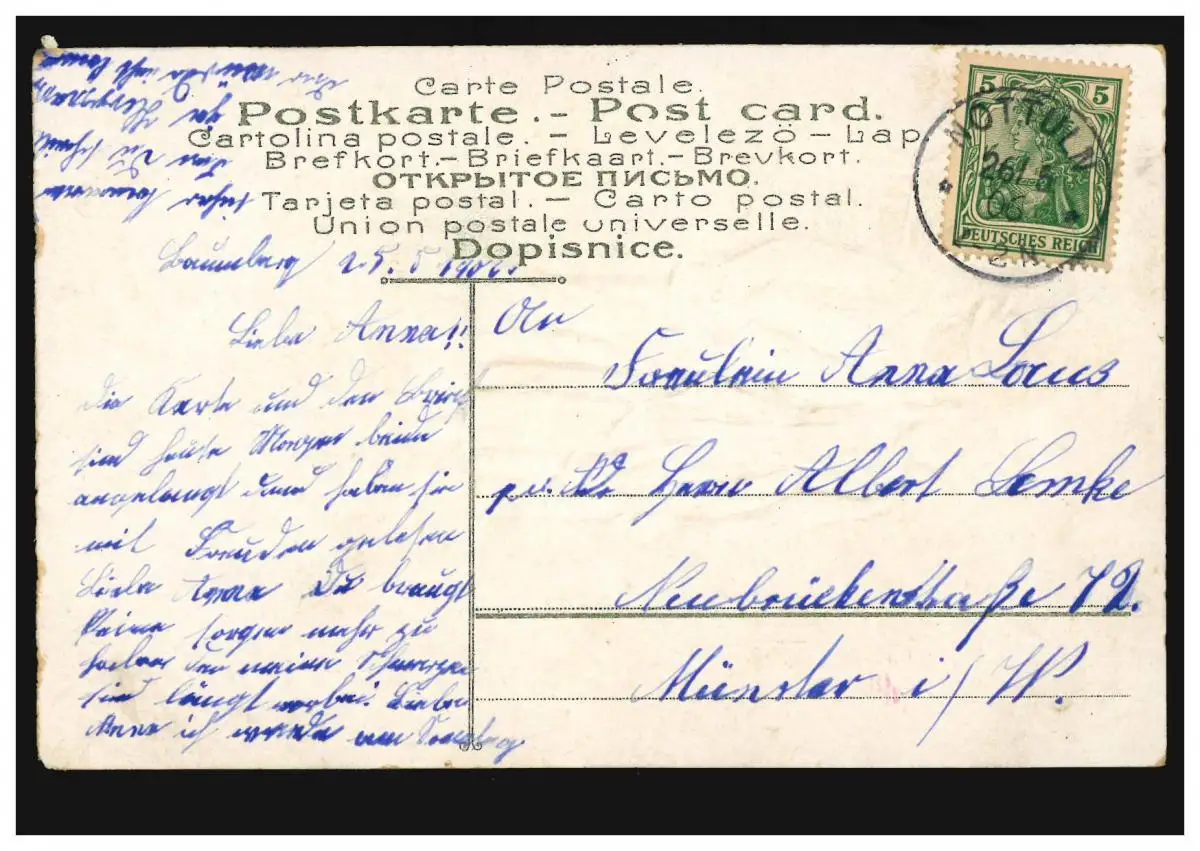 Carte Postale.
Postkarte.- Post card.
Cartolina postale. - Levelezö - Lap
Brefkort.- Briefkaart.- Brevkort.
ОТКРЫТОЕ ПИСЬМО.
Tarjeta postal. - Carto postal.
Union postale universelle.
Dopisnice.
5 5
DEUTSCHES REICH
NOTTULN
26/5
06
Baumberg 25. 5
Liebe Anna!!
Die Karte und den Brief
sind heute Morgen beide
angelangt und haben sie
mit Freuden gelesen
Liebe Anna Du braugst
keine sorgen mehr zu
haben den meine Schmerzen
sind längst vorbei. Liebe
Anna ich werde am Sonntag
An
Fräulein Anna Laus
Herrn Albert Lemke
Neubrückenstraße 72.
Münster i/W.